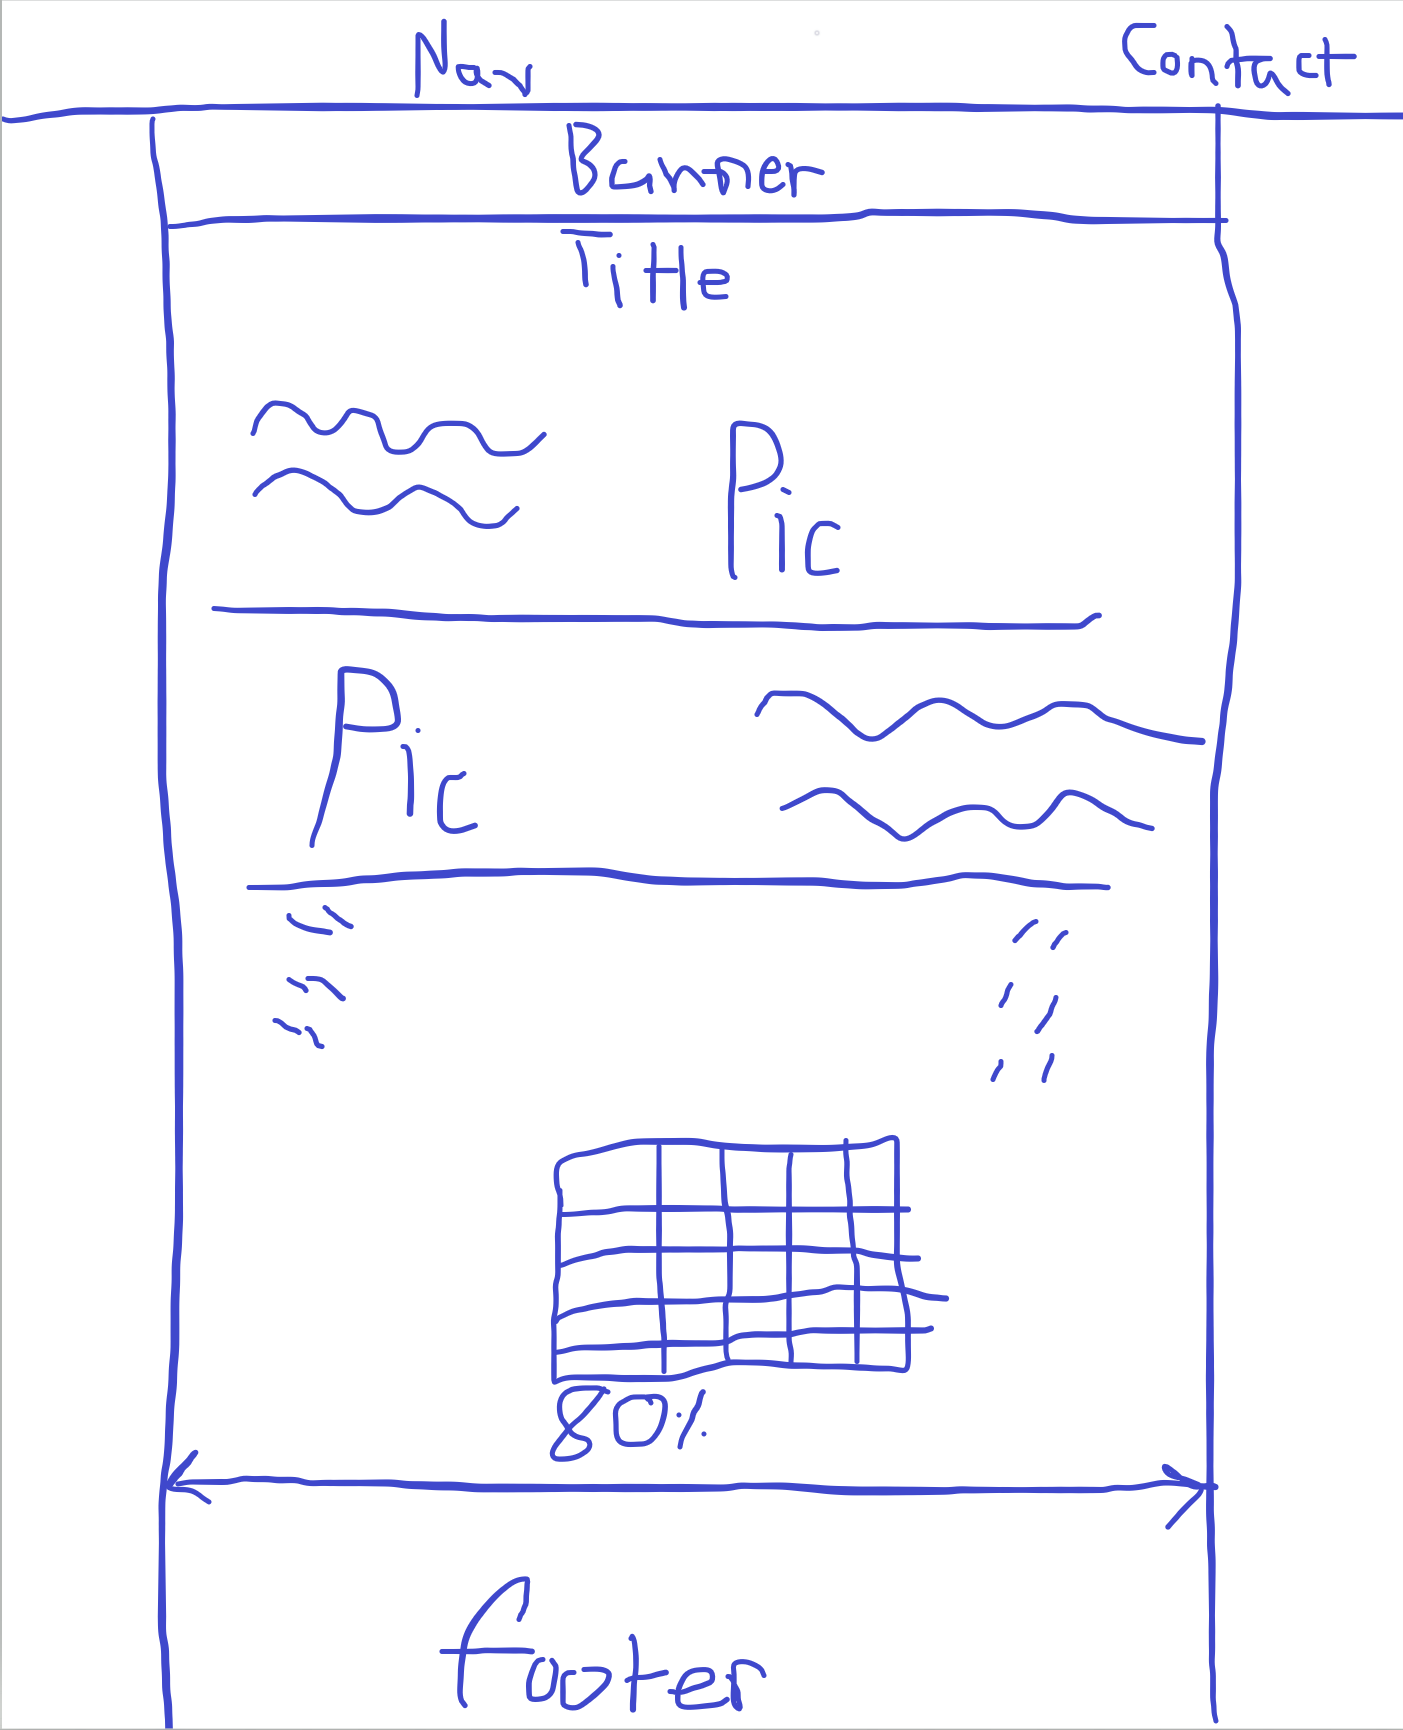 Nav Contact
Banner
Title
Pic
Pic
80%
footer